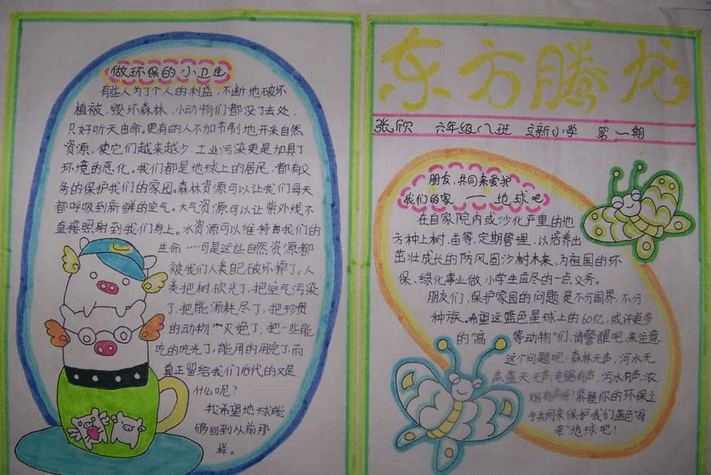 做环保的小卫生
有些人为了个人的利益,不断地破坏
植被,毁坏森林,小动物们都没了去处,
只好听天由命。更有的人不加节制地开来自然
资源,使它们越来越少,工业污染更是加具了
环境的恶化。我们都是地球上的居民,都有义
务的保护我们的家园。森林资源可以让我们每天
都呼吸到新鲜的空气。大气资源可以让紫外线不
直接照射到我们身上。水资源可以维持着我们的
生命……可是这些自然资源都
被我们人类自己破坏掉了。人
类把树砍光了,把空气污染
了,把能源耗尽了,把珍贵
的动物灭绝了,把一些能
吃的吃光了,能用的用完了,而
真正留给我们后代的又是
什么呢?
我希望地球能
够回到从前那
样。
东方腾龙
张欣 六年级八班 立新小学 第一期
朋友,共同来爱我
我们的家——地球吧
在自家院内或沙化严重的地
方种上树、苗等,定期管理,以培养出
茁壮成长的防风固沙树木来,为祖国的环
保、绿化事业做小学生应尽的一点义务。
朋友们,保护家园的问题是不分国界,不分
种族。希望这蓝色星球上的60亿,或许更多
的“高等动物”们,请警醒吧,来注意
这个问题吧:森林无声,河水无
声,蓝天无声,电锯有声,污水有声,浓
烟有声啊!紧握你的环保之
手共同来保护我们蓝色“母
亲”地球吧!